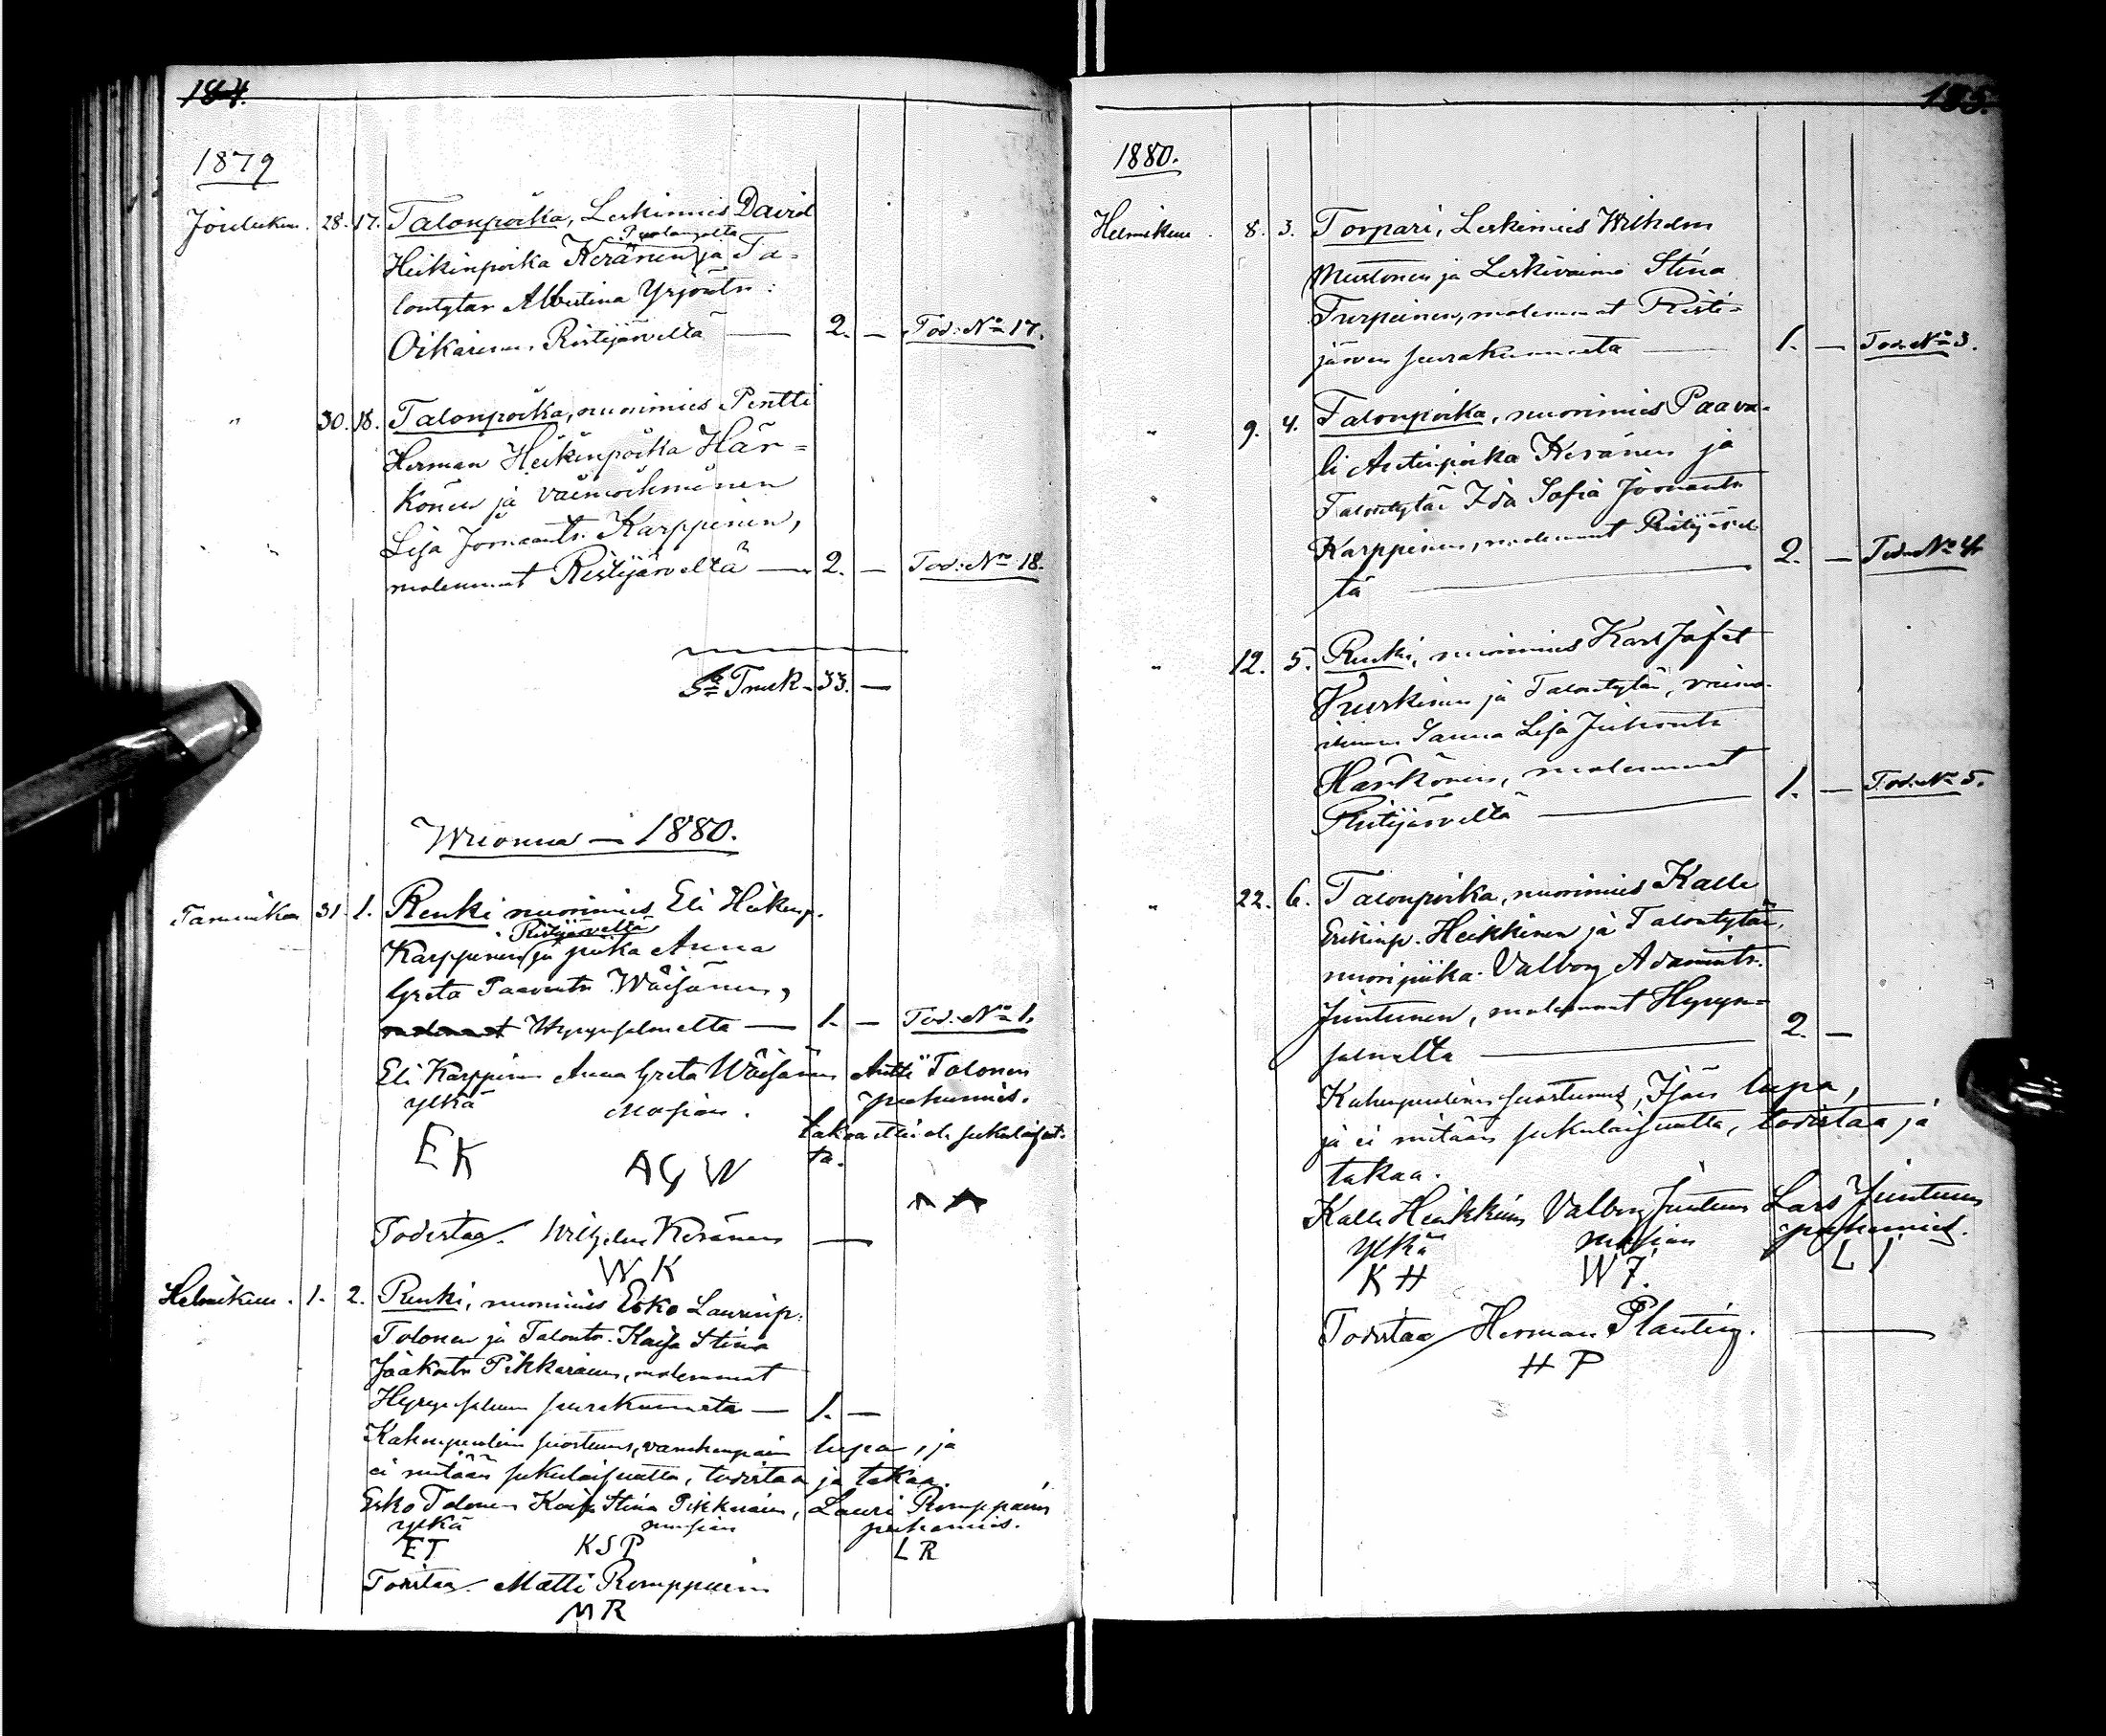 184.
1879
Joulukuu. 28. 17. Talonpoika, Leskimies David
Puolangalta
Heikinpoika Keränen ja Ta-
lontytär Albertina Yrjöntr:
Oikarinen Ristijärveltä — 2. — Tod: No 17.
" 30. 18. Talonpoika, nuorimies Pentti
Herman Heikinpoika Här=
könen ja vaimoihminen
Lisa Joonaantr. Karppinen,
molemmat Ristijärveltä — 2. — Tod: No 18.
Sa Truk. 33. —
Wuonna — 1880.
Tammikuu 31. 1. Renki nuorimies Eli Heikinp.
Ristijärveltä
Karppinen ja piika Anna
Greta Paavontr Wäisänen,
molemmat Hyrynsalmelta — 1. — Tod: No 1.
Eli Karppinen Anna Greta Wäisänen Antti Tolonen
ylkä morsian. puhemies.
E K A G W takaa ettei ole sukulaisuut-
ta.
Todistaa. Wilhelm Keränen —
W K
Helmikuu. 1. 2. Renki, nuorimies Esko Laurinp.
Tolonen ja Talontr. Kaisa Stina
Jaakontr Pikkarainen, molemmat
Hyrynsalmen seurakunnasta — 1. —
Kahenpuolinen suostumus, vanhempain lupa, ja
ei mitään sukulaisuutta, todistaa ja takaa.
Esko Tolonen Kaisa Stina Pikkarainen, Lauri Romppainen
ylkä morsian puhemies.
E T K S P L R
Todistaa. Matti Romppainen
M R
185.
1880.
Helmikuu. 8. 3. Torpari, Leskimies Wilhelm
Mustonen ja Leskivaimo Stina
Turpeinen, molemmat Risti=
järven seurakunnasta — 1. — Tod: No 3.
" 9. 4. Talonpoika, nuorimies Paava-
li Antinpoika Keränen ja
Talontytär Ida Sofia Joonaantr
Karppinen, molemmat Ristijärvel-
tä — 2. — Tod: No 4.
" 12. 5. Renki, nuorimies Karl Jafet
Kurkinen ja Talontytär, vaimo-
ihminen Sanna Lisa Juhontr
Härkönen, molemmat
Ristijärveltä — 1. — Tod: No 5.
" 22. 6. Talonpoika, nuorimies Kalle
Erikinp. Heikkinen ja Talontytär,
nuoripiika Valborg Adamintr.
Juntunen, molemmat Hyryn=
salmelta — 2. —
Kahenpuolinen suostumus, Isän lupa,
ja ei mitään sukulaisuutta, todistaa ja
takaa.
Kalle Heikkinen Valborg Juntunen Lars Juntunen
ylkä morsian puhemies.
K H W J. L J
Todistaa Herman Planting. —
H P